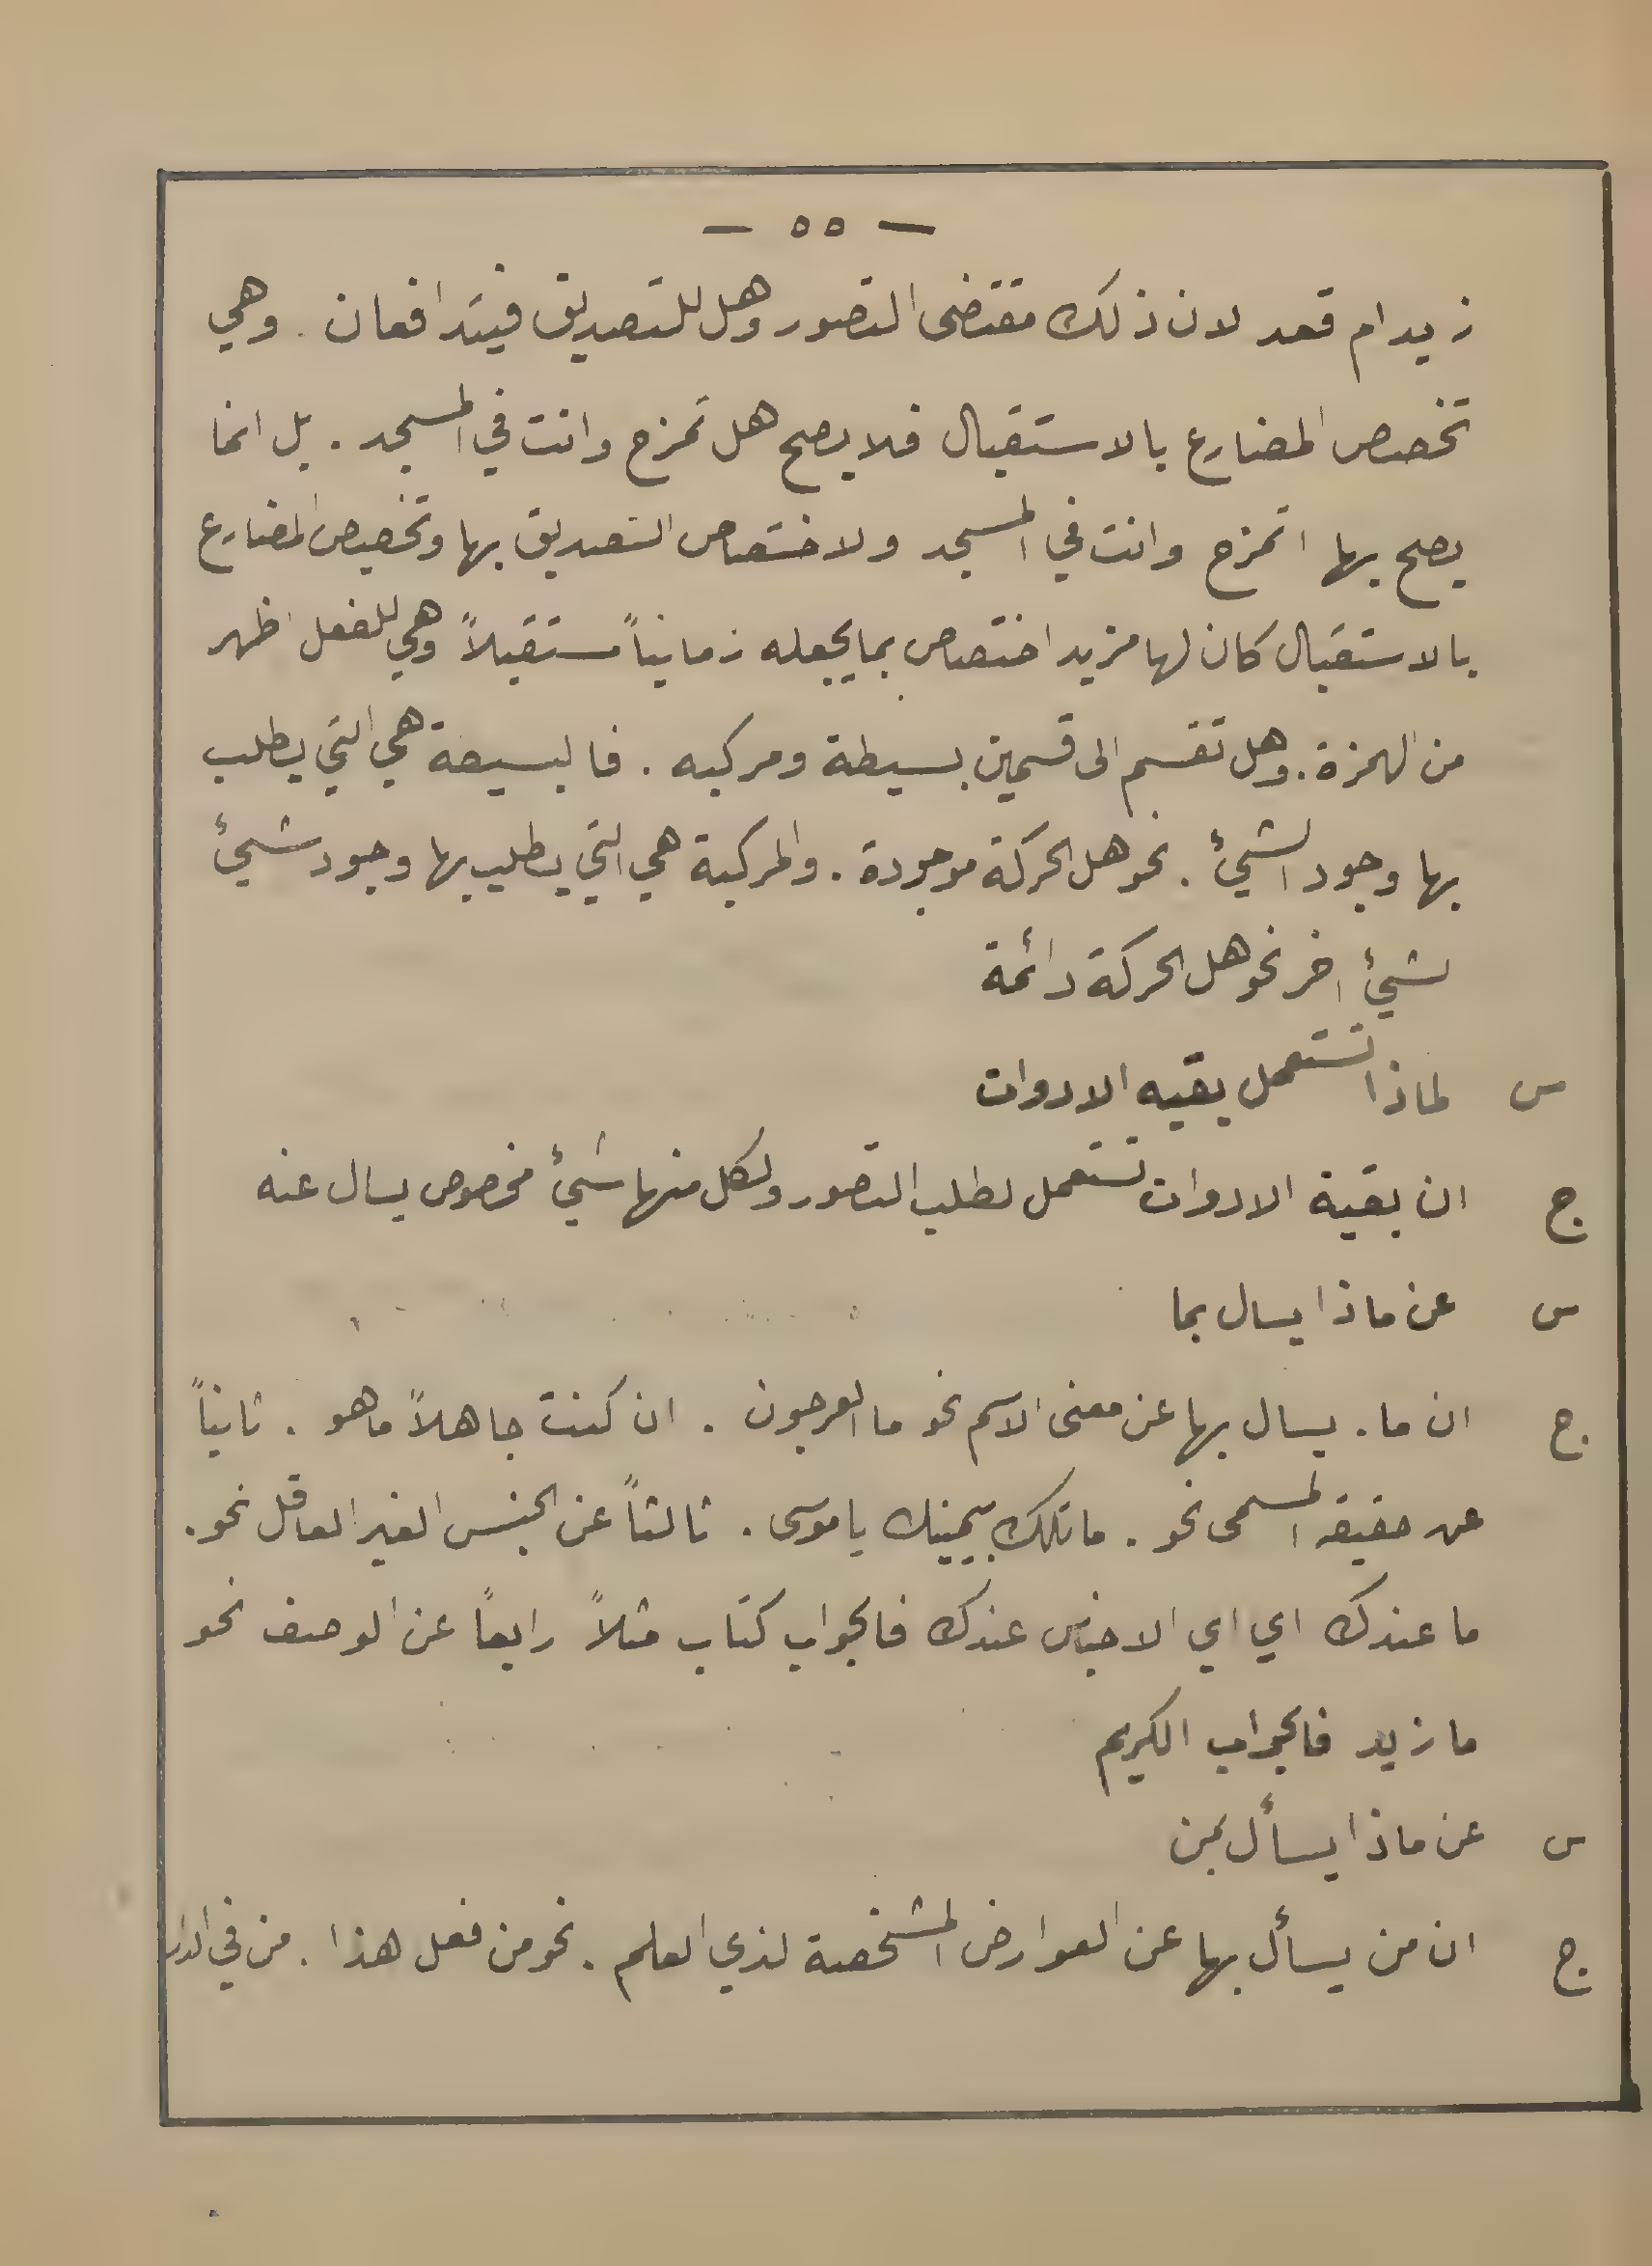 — ٥٥ —
زيد ام قعد لان ذلك مقتضى التصور وهل للتصديق فيتدافعان . وهي
تخصص المضارع بالاستقبال فلا يصح هل تمزح وانت في المسجد . بل انما
يصح بها اتمزح وانت في المسجد ولاختصاص التصديق بها وتخصيص المضارع
بالاستقبال كان لها مزيد اختصاص بما يجعله زمانياً مستقبلاً وهي للفعل اظهر
من الهمزة . وهل تقسم الى قسمين بسيطة ومركبه . فالبسيطة هي التي يطلب
بها وجود الشيئ . نحو هل الحركة موجودة . والمركبة هي التي يطلب بها وجود شيئ
لشيئ اخر نحو هل الحركة دائمة
س لماذا تستعمل بقيه الادوات
ج ان بقية الادوات تستعمل لطلب التصور ولكل منها شيئ مخصوص يسال عنه
س عن ماذا يسال بما
ج ان ما . يسال بها عن معنى الاسم نحو ما العرجون . ان كنت جاهلاً ما هو . ثانياً
عن حقيقه المسمى نحو . ما تلك بيمينك يا موسى . ثالثاً عن الجنس الغير العاقل نحو .
ما عندك اي اي الاجناس عندك فالجواب كتاب مثلاً رابعاً عن الوصف نحو
ما زيد فالجواب الكريم
س عن ماذا يسأل بمن
ج ان من يسأل بها عن العوارض المشخصة لذي العلم . نحو من فعل هذا . من في الدار